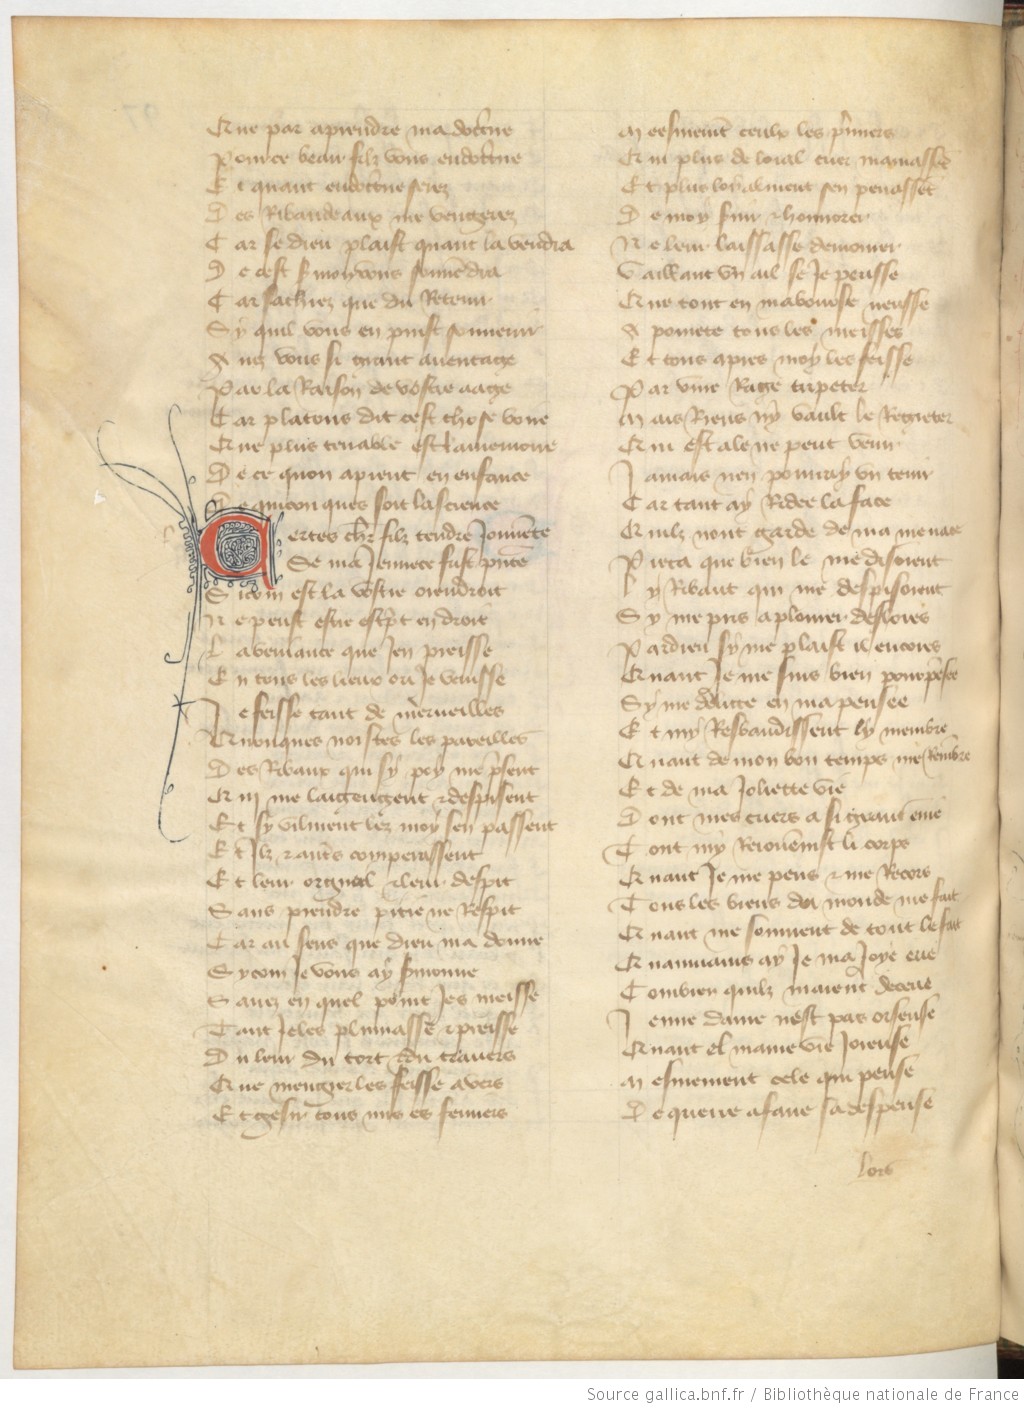 Que par aprendre ma doctrine
Pour ce beau filz vous endoctrine
Et quant endoctrine serez
Des Ribaudeaux me vengerez
Car se dieu plaist quant la vendra
De cest sermon vous souvendra
Car sachiez que du Retenir
Sy quil vous en puist souvenir
Avez vous si grant auentage
Par la Raison de vostre aage
Car platons dit cest chose voire
Que plus tenable est la memoire
De ce quon aprent en enfance
De quiconques soit la science
Certes chr filz tendre Jouuente
Se ma Jeunece fust presente
Sicom est la vostre orendroit
Ne peust estre escript en droit
La veniance que Jen preisse
En tous les lieux ou Je venisse
Je feisse tant de merueilles
Quonques noistes les pareilles
Des Ribaux qui sy poy me prisent
Qui me laidengent & despisent
Et sy vilment lez moy sen passent
Et Ilz & autres comperassent
Et leur orgueil & leur despit
Sans prendre pitie ne Respit
Car au sens que dieu ma donne
Sycom Je vous ay sermonne
Sauez en quel point Jes meisse
Tant Jeles plumasse & preisse
Du leur du tort & du trauers
Que mengier les feisse a vers
Et gesir tous nus es femiers
Meesmement ceulx les premiers
Qui plus de loial cuer mamassent
Et plus loyalment sen penassent
De moy seruir & honnorer
Ne leur laissasse demourer
Vaillant vn ail se Je peusse
Que tout en ma bourse neusse
A pourete tous les meisses
Et tous apres moy les feisse
Par viue Rage triper
Mais Riens ny vault le Regreter
Qui est ale ne peut venir
Jamais nen pourray vn tenir
Car tant ay Ridee la face
Quilz nont garde de ma menace
Pieca que bien le me disoient
Ly Ribaut qui me despisoient
Sy me pris a plourer deslores
Pardieu sy me plaist il encores
Quant Je me suis bien pourpensee
Sy me delicte en ma pensee
Et my Resbaudissent ly membre
Quant de mon bon temps me Remembre
Et de ma Joliette vie
Dont mes cuers a si grant enuie
Tont my Reiouuenist li corps
Quant Je me pens & me Recors
Tous les biens du monde me fait
Quant me souuient de tout le fait
Quauuains ay Je ma Joye eue
Combien quilz maient deceue
Jeune dame nest pas oiseuse
Quant el maine vie Joieuse
Mesmement cele qui pense
De querre a faire sa despense
Lors
Source gallica.bnf.fr / Bibliothèque nationale de France